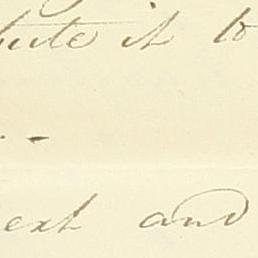 bute it to
- -
ext and